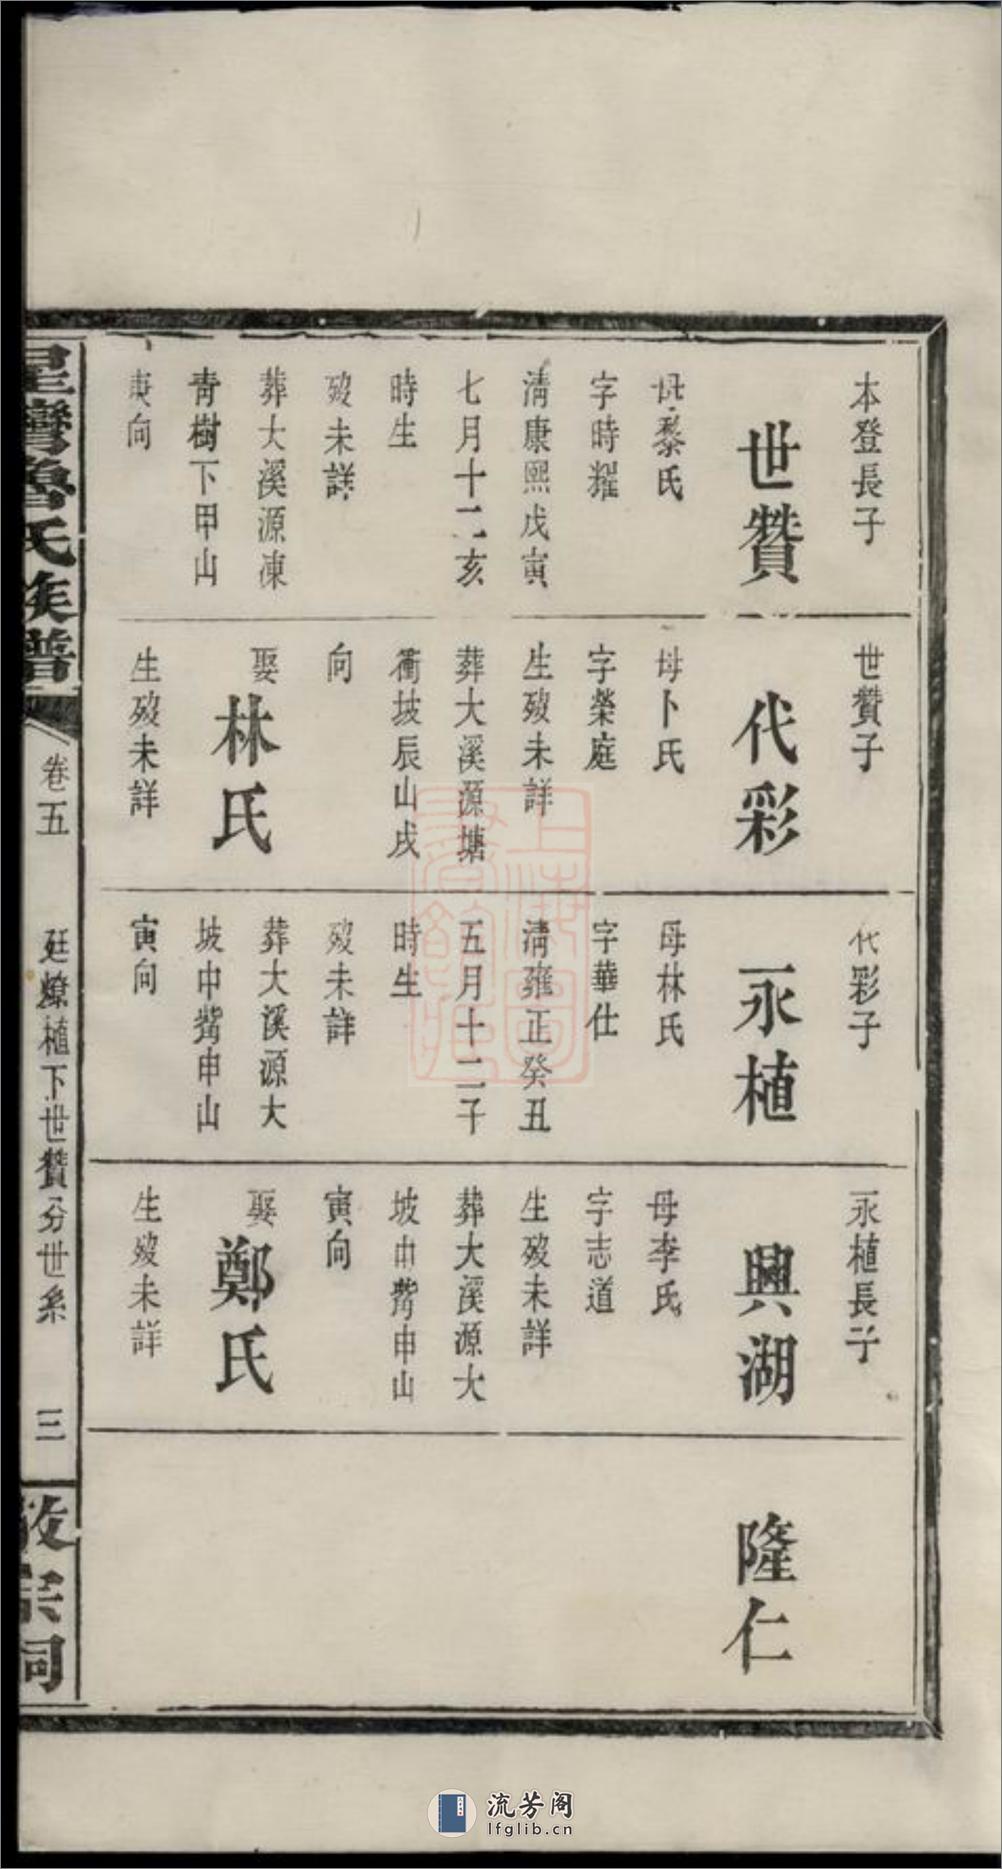 本登長子
世贊
母黎氏
字時耀
清康熙戊寅
七月十二亥
時生
歿未詳
葬大溪源凍
青樹下甲山
庚向
世贊子
代彩
母卜氏
字榮庭
生歿未詳
葬大溪源塘
衝坡辰山戌
向
娶
林氏
生歿未詳
代彩子
永植
母林氏
字華仕
清雍正癸丑
五月十二子
時生
歿未詳
葬大溪源大
坡中嘴申山
寅向
永植長子
興湖
母李氏
字志道
生歿未詳
葬大溪源大
坡中嘴申山
寅向
娶
鄭氏
生歿未詳
隆仁
星灣魯氏族譜
卷五
廷燎植下世贊分世系
三
敬宗祠
上海圖書館藏
流芳阁
lfglib.cn